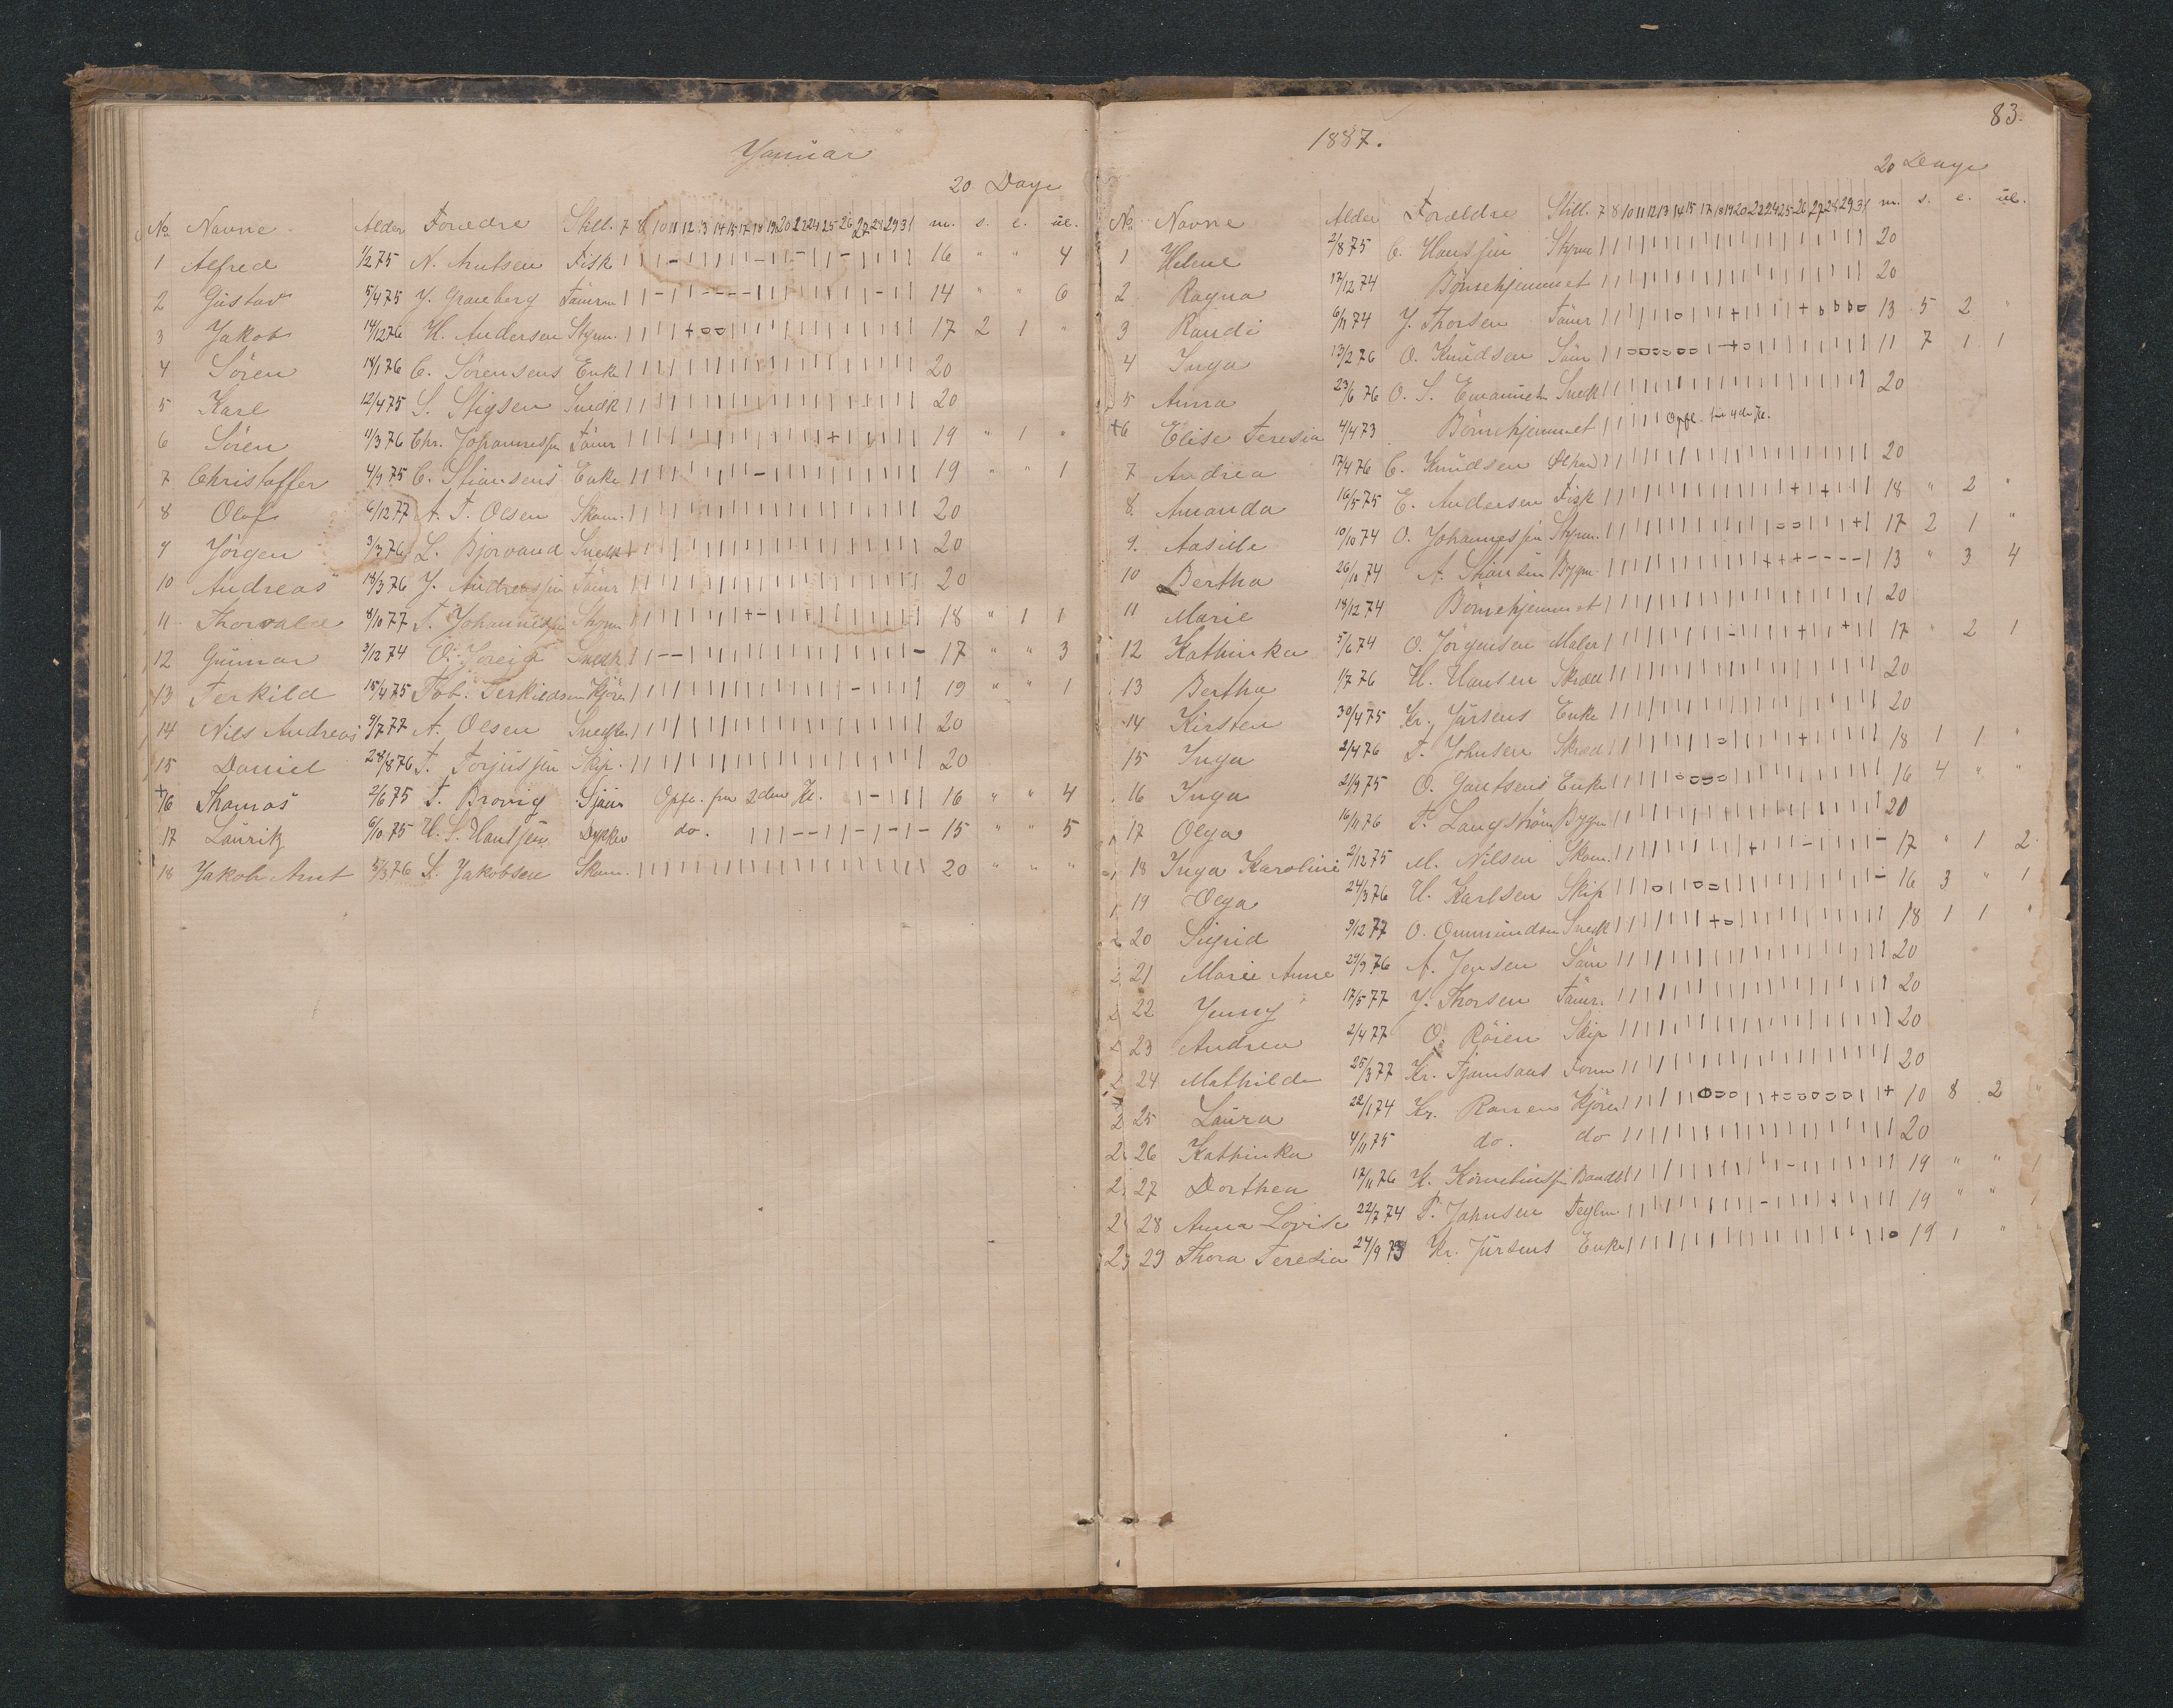 Januar
20 Dage
No Navne Alder Forældre Still. 7 8 10 11 12 13 14 15 17 18 19 20 21 22 24 25 26 27 28 29 31 m. s. l. ul.
1 Alfred 1/2 75 N. Knutsen Fisk 16 " " 4
2 Gustav 5/4 75 J. Graneberg Tømrm 14 " " 6
3 Jakob 14/12 76 H. Andersen Styrm. 17 2 1 "
4 Søren 18/1 76 C. Sørensens Enke 20
5 Karl 12/4 75 S. Stigsen Snedk 20
6 Søren 11/3 76 Chr. Johannessen Tømr 19 " 1 "
7 Christoffer 4/9 75 C. Stiansens Enke 19 " " 1
8 Olaf 6/12 77 A. T. Olsen Skom. 20
9 Jørgen 3/3 76 L. Bjorvand Snedk 20
10 Andreas 18/3 76 J. Andreassen Tømr 20
11 Thorvald 8/10 77 T. Johannessen Styrm 18 " 1 1
12 Gunnar 3/12 74 Snedk 17 " " 3
13 Terkild 15/4 75 Tob. Terkildsen Kjøre 19 " " 1
14 Nils Andreas 9/7 77 A. Olsen Snedker 20
15 Daniel 28/8 76 T. Torjussen Skip. 20
+ 16 Thomas 2/6 75 T. Brovig Sjøm Opfl. fra 2den Kl. 16 " " 4
17 Laurits 6/10 75 H. S. Hansen Dykker do. 15 " " 5
18 Jakob Arnt 5/3 76 S. Jakobsen Skom. 20 " " "
83.
1887.
20 Dage
No. Navne Alder Forældre Still. 7 8 10 11 12 13 14 15 17 18 19 20 21 22 24 25 26 27 28 29 31 m. s. l. ul.
1 Helene 2/8 75 C. Hanssen Styrm 20
2 Ragna 17/12 74 Børnehjemmet 20
3 Randi 6/11 74 J. Thorsen Tømr 13 5 2 "
4 Inga 13/2 76 O. Knudsen Søm 11 7 1 1
5 Anna 23/6 76 O. S. Snedk 20
+6 Elise Teresia 4/4 73 Børnehjemmet Opfl. til 4de Kl.
7 Andrea 17/4 76 C. Knudsen 20
8. Amanda 16/5 75 E. Andersen Fisk 18 " 2 "
9. Aasille 10/10 74 O. Johannessen Styrm. 17 2 1 "
10 Bertha 26/10 74 A. Stiansen Bygm 13 " 3 4
11 Marie 18/12 74 Børnehjemmet 20
12 Kathinka 5/6 74 O. Jørgensen Maler 17 " 2 1
13 Bertha 1/7 76 H. Hansen Skræd 20
14 Kirsten 30/4 75 Kr. Jürsens Enke 20
15 Inga 2/4 76 T. Johnsen Skræd 18 1 1 "
16 Inga 21/9 75 O. Gautsens Enke 16 4 " "
17 Olga 16/11 76 T. Langstrøm Bygm 20
18 Inga Karoline 2/12 75 M. Nilsen Skom. 17 " 1 2
19 Olga 24/3 76 H. Karlsen Skip 16 3 " 1
20 Sigrid 9/12 77 O. Ommundsen Snedk 18 1 1 "
21 Marie Anne 29/9 76 A. Jensen Søm 20
22 Jenny 17/5 77 J. Thorsen Tømr. 20
23 Andrea 2/4 77 O. Røien Skip 20
24 Mathilde 25/3 77 Kr. 20
25 Laura 22/1 74 Kr. Kjøre 10 8 2
26 Kathinka 4/11 75 do. do 20
27 Dorthea 17/11 76 K. Korneliussen 19 " " 1
28 Anna Lovise 22/7 74 T. Johnsen 19 " " 1
29 Thora Teresia 24/9 73 Kr. Jürsens Enke 19 1 "